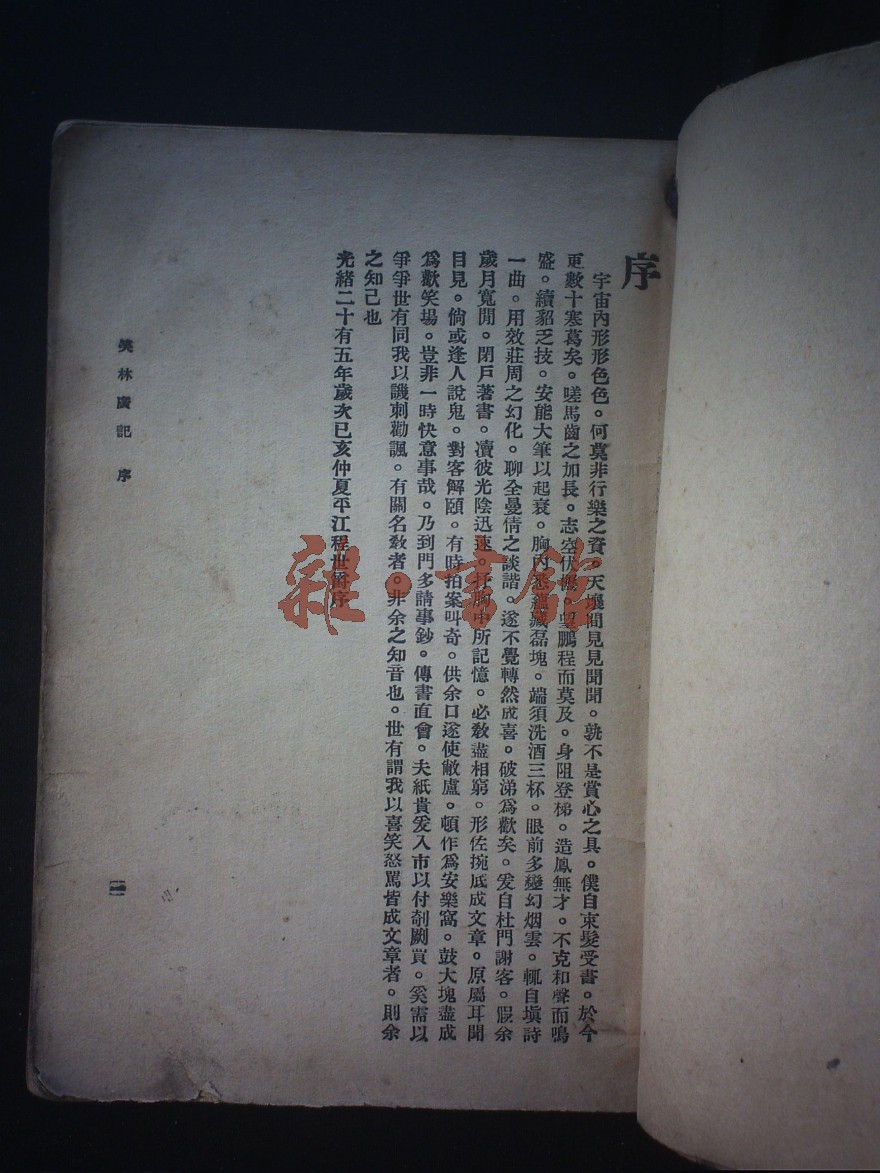 序
宇宙內形形色色。何莫非行樂之資。天壤間見見聞聞。孰不是賞心之具。僕自束髮受書。於今
更數十寒葛矣。嗟馬齒之加長。志空伏櫪。望鵬程而莫及。身阻登梯。造鳳無才。不克和聲而鳴
盛。續貂乏技。安能大筆以起衰。胸內悉蘊藏磊塊。端須洗酒三杯。眼前多變幻烟雲。輒自塡詩
一曲。用效莊周之幻化。聊全曼倩之談諧。遂不覺轉然成喜。破涕爲歡矣。爰自杜門謝客。假余
歲月寬閒。閉戶著書。凟彼光陰迅速。抒胸中所記憶。必敎盡相窮。形佐捥底成文章。原屬耳聞
目見。倘或逢人說鬼。對客解頤。有時拍案叫奇。供余口遂使敝盧。頓作爲安樂窩。鼓大塊盡成
爲歡笑場。豈非一時快意事哉。乃到門多請事鈔。傳書直會。夫紙貴爰入市以付剞劂買。奚需以
爭爭世有同我以譏刺勸諷。有關名敎者。非余之知音也。世有謂我以喜笑怒罵皆成文章者。則余
之知己也
光緖二十有五年歲次己亥仲夏平江程世爵序
笑林廣記 序
【一】
雜·書館